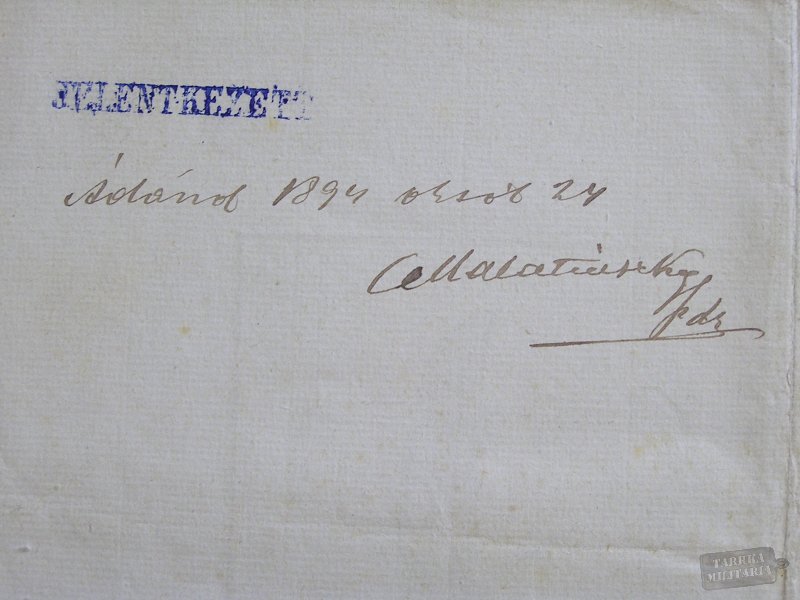 JELENTKEZETT
Ádánd 1894 október 24
Malatinszky
TARRKA
MILITARIA